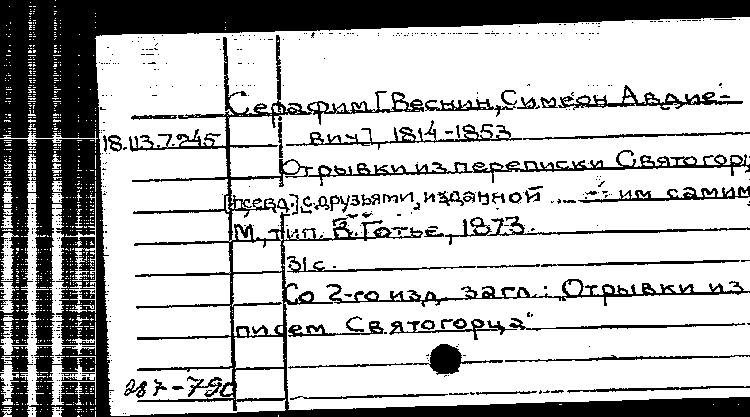 Серафим [Веснин, Симеон Авдие-
18.113.7.245 вич], 1814-1853
Отрывки из переписки Святогорц
[псевд.] с друзьями, изданной ... им самим,
М., тип. В. Готье, 1873.
31 с.
Со 2-го изд. загл.: „Отрывки из
писем Святогорца"
287-790